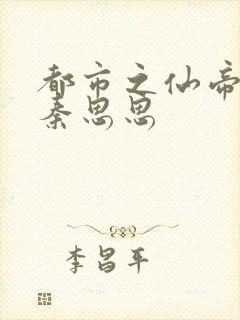 都市之仙帝
秦思思
李昌平